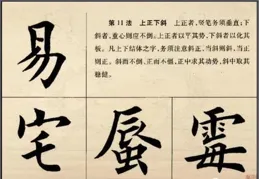 第11法 上正下斜 上正者,竖笔务须垂直;下
斜者,重心则应不倒。上正者以平其势,下斜者以化其
板。凡上下结体之字,务须注意斜正。当斜则斜,当正
则正。斜而不倒,正而不板,正中求其动势,斜中取其
稳健。
易
宅 蜃 霉